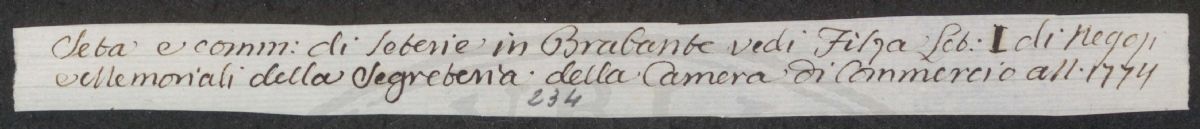 Seta e comm: di seterie in Brabante vedi Filza Let: I di Negozj
e Memoriali della Segreteria della Camera di Commercio all. 1774
234